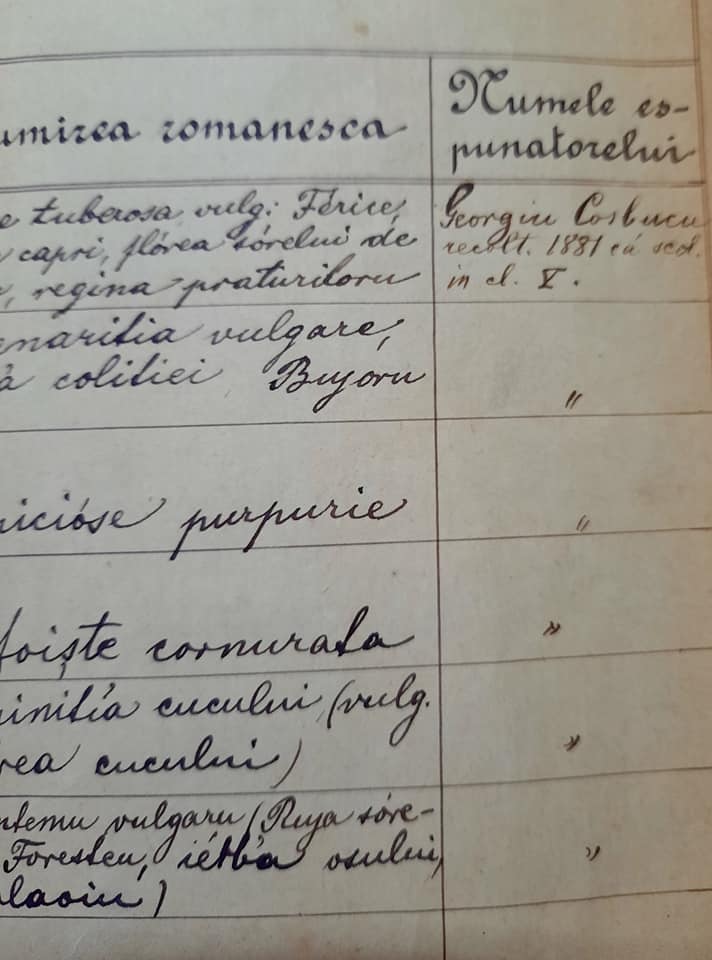 umirea romanesca
Numele es-
punatorelui
e tuberosa vulg: Férice,
capri, flórea sórelui de
, regina praturiloru
Georgiu Cosbucu
recolt. 1881 cá scol.
in cl. V.
enaritia vulgare,
á colitiei Bujoru
"
nicióse purpurie
"
foiște cornurata
"
initía cucului (vulg.
rea cucului)
"
ntemu vulgaru (Ruja sóre-
Foresteu, iérba osului,
)
"